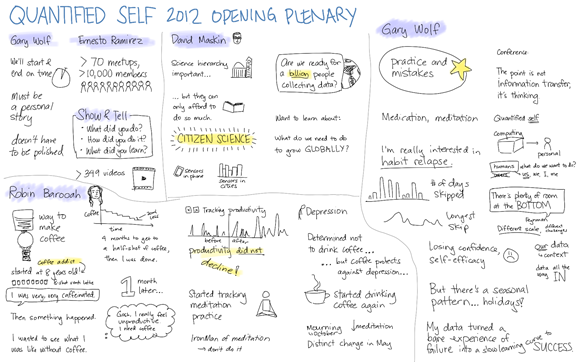 QUANTIFIED SELF 2012 OPENING PLENARY
Gary Wolf
We'll start &
end on time
Must be
a personal
story
doesn't have
to be polished
Ernesto Ramirez
> 70 meetups,
> 10,000 members
Show & Tell
• What did you do?
• How did you do it?
• What did you learn?
> 349 videos
David Maskin
Science hierarchy
important...
... but they can
only afford to
do so much.
CITIZEN SCIENCE
sensors
in phone
sensors in
cities
Are we ready for
a billion people
collecting data?
Want to learn about:
What do we need to do
to grow GLOBALLY?
Gary Wolf
practice and
mistakes
Medication, meditation
I'm really interested in
habit relapse:
# of days
skipped
Longest
skip
Conference
The point is not
information transfer,
it's thinking
Quantified self
computing
personal
humans
what do we want to do?
us, I, me
There's plenty of room
at the BOTTOM
Feynman
Different scale,
different challenges
Losing confidence,
self-efficacy
Our data
is context
data all the
way IN
But there's a seasonal
pattern... holidays?
My data turned a
bare experience of
failure into a slow learning curve to SUCCESS
Robin Barooah
way to
make
coffee
coffee addict
started at 8 years old!
I was very very caffeinated.
Then something happened.
I wanted to see what I
was like without coffee.
Coffee
time
4 months to get to
a half-shot of coffee,
then I was done.
1 month
later...
Gosh, I really feel
unproductive
I need coffee
Tracking productivity
before
after
productivity did not
decline?
Started tracking
meditation
practice
IronMan of meditation
→ don't do it
Depression
Determined not
to drink coffee...
... but coffee protects
against depression...
Started drinking
coffee again
Mourning
in October
meditation
Distinct change in May